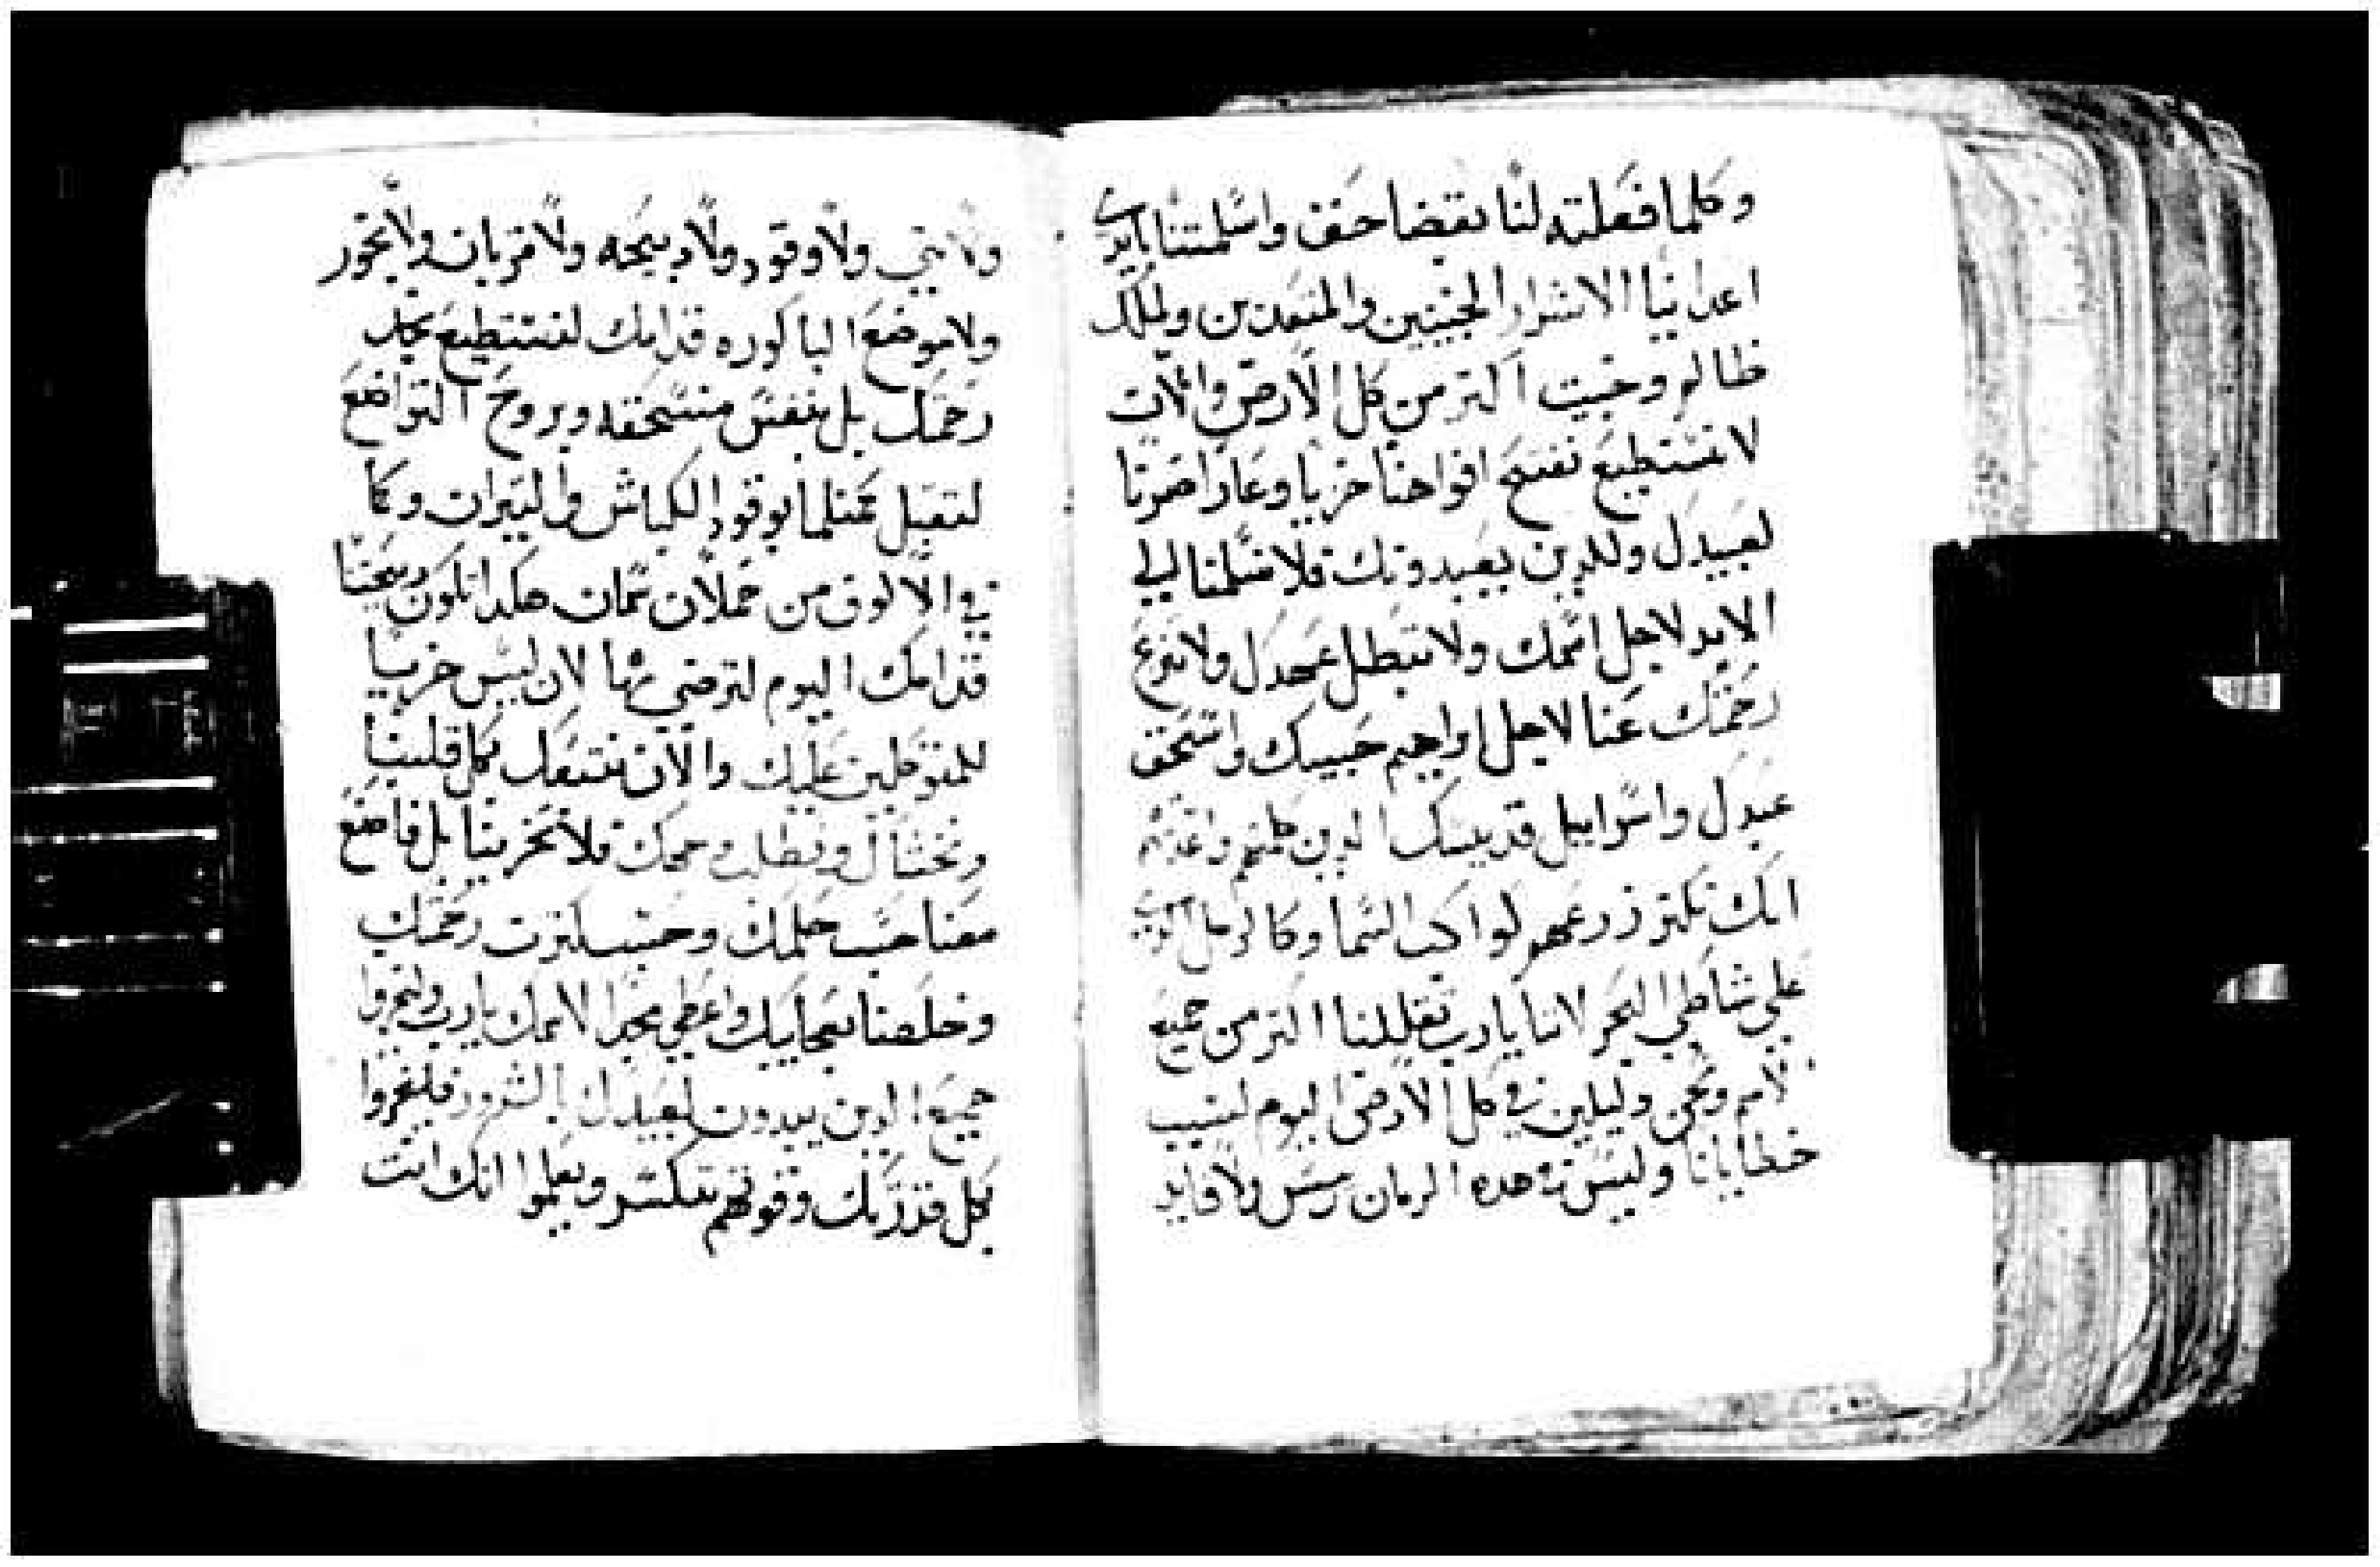 وكلما فعلته لنا بقضا حق واسلمتنا بايدي
اعداينا الاشرار الخبيثين والمنعدين ولملك
ظالم وخبيت اكتر من كل الارض والان
لا نستطيع نفتح افواهنا خزيا وعارا صرنا
لعبيدك وللدين يعبدونك فلا تسلمنا الي
الابد لاجل اسمك ولا تبطل عهدك ولا تنزع
رحمتك عنا لاجل ابراهيم حبيبك واسحق
عبدك واسراييل قديسك الدين كلمتهم واعدتهم
انك تكتر زرعهم كواكب السما وكالرمل الدي
علي شاطي البحر لاننا يارب تقللنا اكتر من جميع
الامم ونحن دليلين في كل الارض اليوم لسبب
خطايانا وليس في هده الزمان ريس ولا قايد
ولا نبي ولا وقود ولا دبيحه ولا قربان ولا بخور
ولا موضع الباكوره قدامك لنستطيع نجد
رحمتك بل بنفس منسحقه وبروح التواضع
لتقبل كمتلما بوقود الكباش والتيران وكما
في الالوف من حملان سمان هكدا تكون دبيحتنا
قدامك اليوم لترضي بها لان ليس خزيا
للمتوكلين عليك والان نتبعك بكل قلبنا
ونخشاك ونطلب وجهك فلا تخزينا بل فاصنع
معنا حسب حلمك وحسب كترت رحمتك
وخلصنا بعجايبك واعطي مجدا لاسمك يارب وليخزوا
جميع الدين يبدون لعبيدك الشرور فليخزوا
بكل قدرتك وقوتهم تنكسر ويعلموا انك انت